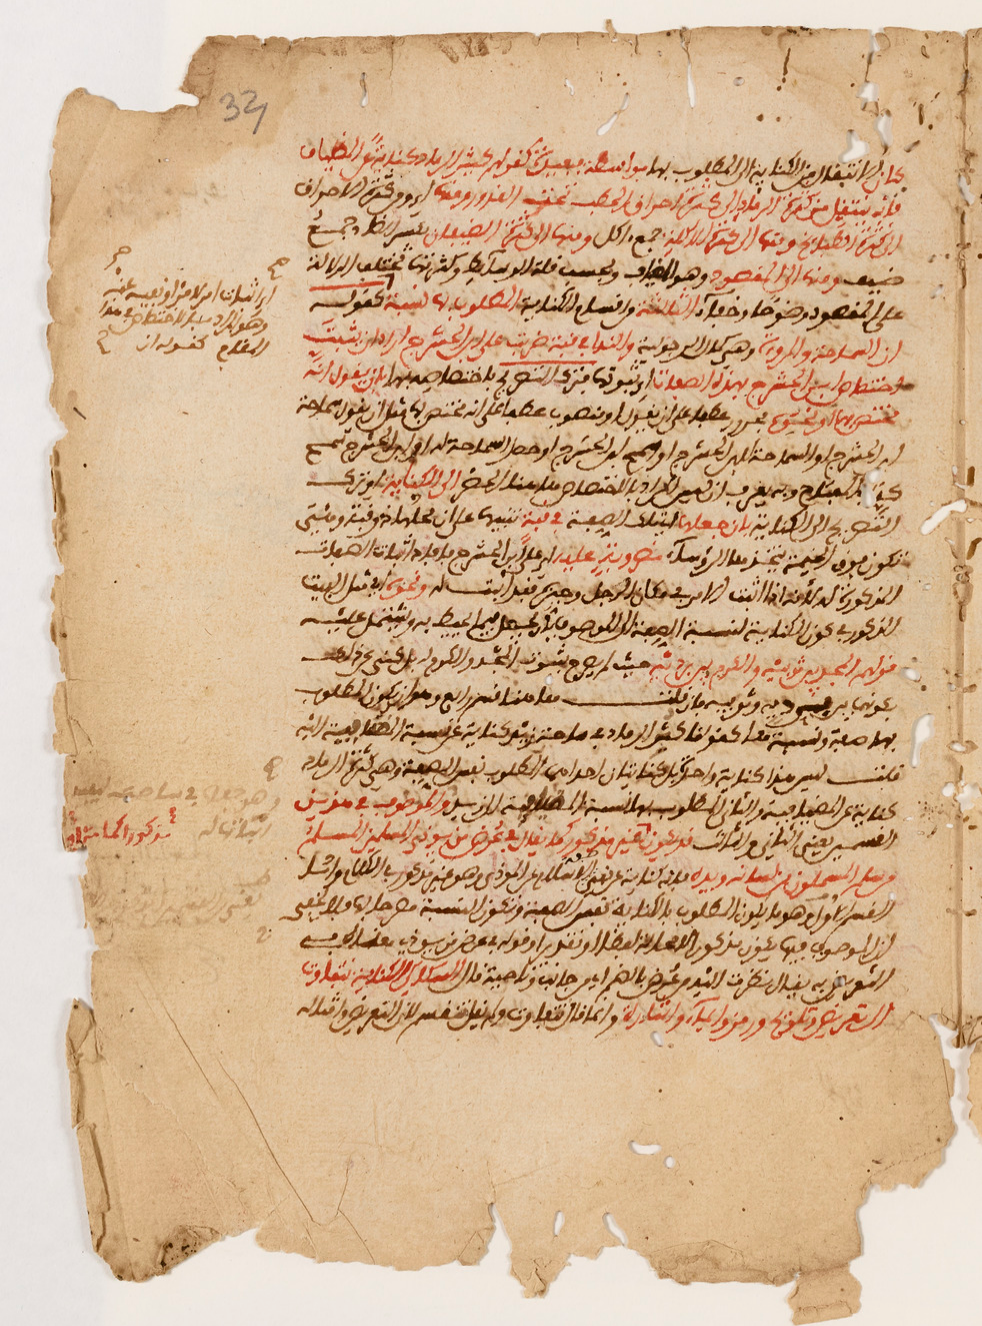 كان الانتقال من الكناية الى المطلوب بها بواسطة فبعيدة كقولهم كثير الرماد كناية عن المضياف
فانه ينتقل من كثرة الرماد الى كثرة احراق الحطب تحت القدور ومنها اي ومن كثرة الاحراق
الى كثرة الطبايخ ومنها الى كثرة الاكلة جمع اكل ومنها الى كثرة الضيفان بكسر الضاد جمع
ضيف ومنها الى المقصود وهو المضياف وبحسب قلة الوسايط وكثرتها تختلف الدلالة
على المقصود وضوحا وخفاء الثالثة من اقسام الكناية المطلوب بها نسبة كقوله
ان السماحة والمروة وهي كمال الرجولية والندا في قبة ضربت على ابن الحشرج اراد ان يثبت
اختصاص ابن الحشرج بهذه الصفات اي ثبوتها فترك التصريح باختصاصه بها بان يقول انه
مختص بها او نحوه مجرور عطفا على ان يقول او منصوب عطفا على انه مختص بها مثل ان يقول سماحة
ابن الحشرج او السماحة لابن الحشرج او سمح ابن الحشرج او حصل السماحة له او ابن الحشرج سمح
كذا في المفتاح وبه يعرف ان ليس المراد بالاختصاص هاهنا الحصر الى الكناية اي ترك
التصريح الى الكناية بان جعلها اي تلك الصفة في قبة تنبيها على ان محلها ذو قبة وهي
تكون فوق الخيمة يتخذها الرؤساء مضروبة عليه اي على ابن الحشرج فافاد اثبات الصفات
المذكورة له لانه اذا اثبت الامر في مكان الرجل وحيزه فقد اثبت له ونحوه اي مثل البيت
المذكور في كون الكناية لنسبة الصفة الى الموصوف بان تجعل فيما يحيط به ويشتمل عليه
قولهم المجد بين ثوبيه والكرم بين برديه حيث لم يصرح بثبوت المجد والكرم له بل كنى عن ذلك
بكونهما بين برديه وثوبيه فان قلت هاهنا قسم رابع وهو ان يكون المطلوب
بها صفة ونسبة معا كقولنا كثير الرماد في ساحة زيد كناية عن نسبة المضيافية اليه
قلت ليس هذا كناية واحدة بل كنايتان احداهما المطلوب نفس الصفة وهي كثرة الرماد
كناية عن المضيافية والثاني المطلوب بها نسبة المضيافية الى زيد والموصوف في هذين
القسمين يعني الثاني والثالث قد يكون غير مذكور كما يقال في عرض من يوذي المسلمين المسلم
من سلم المسلمون من لسانه ويده فانه كناية عن نفي الاسلام عن الموذي وهو غير مذكور في الكلام واما
القسم الاول وهو ما يكون المطلوب بالكناية نفس الصفة وتكون النسبة مصرحا بها فلا يخفى
ان الموصوف فيها يكون مذكورا لا محالة لفظا او تقديرا وقوله في عرض من يوذي معناه في
التعريض به يقال نظرت اليه من عرض بالضم اي من جانب وناحية قال السكاكي الكناية تتفاوت
الى تعريض وتلويح ورمز وايماء واشارة وانما قال تتفاوت ولم يقل تنقسم لان التعريض وامثاله
32